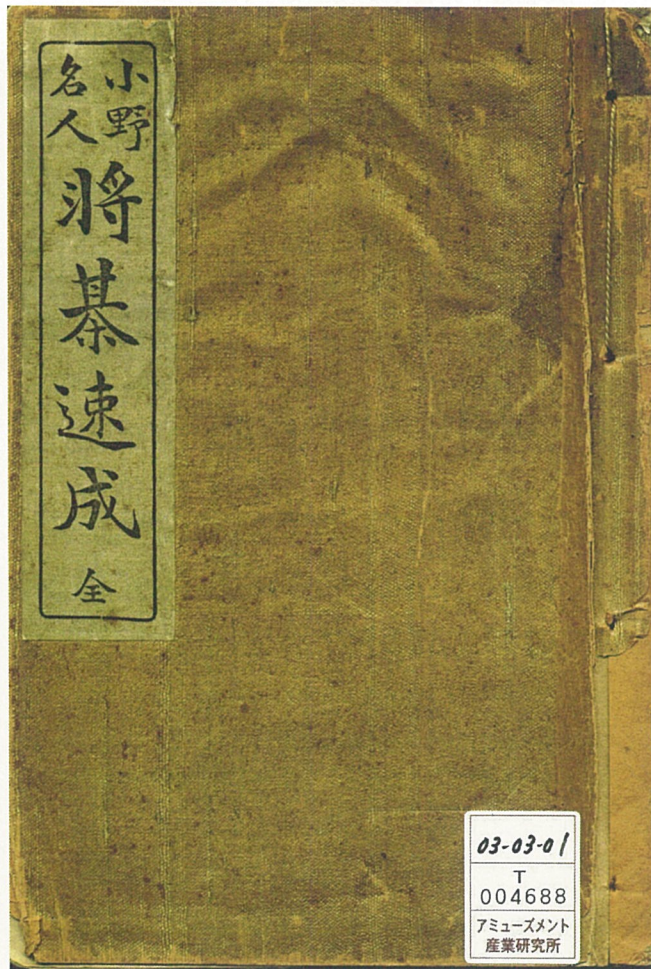 小野
名人
将棊速成
全
03-03-01
T
004688
アミューズメント
産業研究所